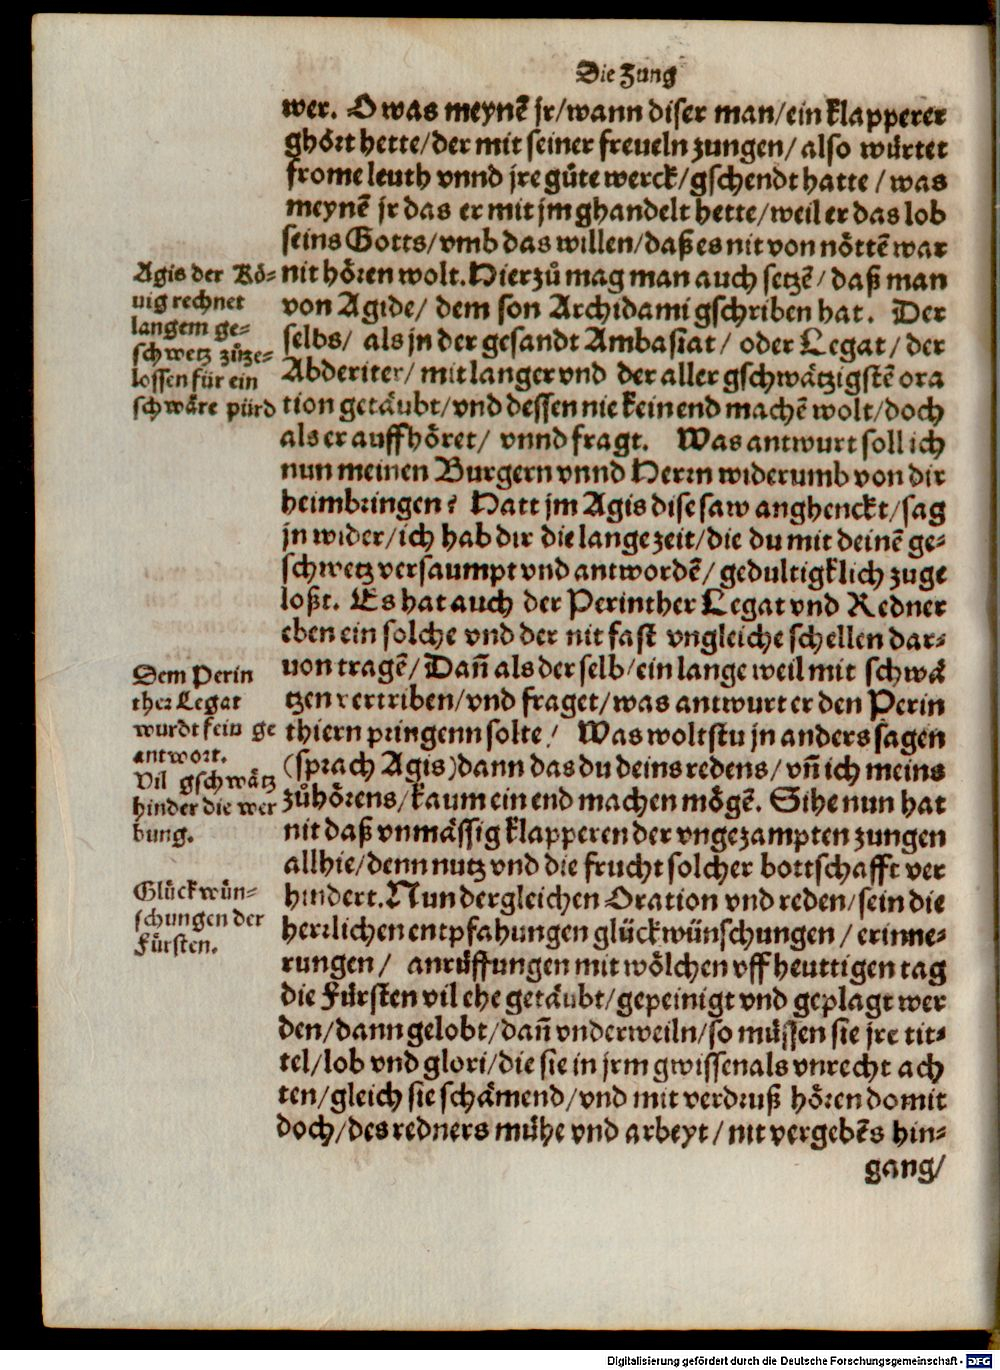 Die Zung
wer. O was meynē jr/wann diser man/ein klapperer
ghört hette/der mit seiner freueln zungen/ also würtet
frome leuth vnnd jre gůte werck/gschendt hatte / was
meynē jr das er mit jm ghandelt hette/weil er das lob
seins Gotts/vmb das willen/daß es nit von nöttē war
nit hören wolt. Hierzů mag man auch setzē/ daß man
von Agide/ dem son Archidami gschriben hat. Der
selbs/ als jn der gesandt Ambasiat/ oder Legat/ der
Abderiter/ mit langer vnd der aller gschwätzigstē ora
tion getäubt/vnd dessen nie kein end machē wolt/doch
als er auffhöret/ vnnd fragt. Was antwurt soll ich
nun meinen Burgern vnnd Herrn widerumb von dir
heimbringen? Hatt jm Agis dise saw anghenckt/sag
jn wider/ich hab dir die lange zeit/die du mit deinē ge-
schwetz versaumpt vnd antwordē/ gedultigklich zuge
loßt. Es hat auch der Perinther Legat vnd Redner
eben ein solche vnd der nit fast vngleiche schellen dar-
uon tragē/Dañ als der selb/ein lange weil mit schwä
tzen vertriben/vnd fraget/was antwurt er den Perin
thiern pringenn solte/ Was woltstu jn anders sagen
(sprach Agis)dann das du deins redens/ vñ ich meins
zůhörens/kaum ein end machen mögē. Sihe nun hat
nit daß vnmässig klapperen der vngezampten zungen
allhie/denn nutz vnd die frucht solcher bottschafft ver
hindert. Nun dergleichen Oration vnd reden/sein die
herrlichen entpfahungen glückwünschungen / erinne-
rungen/ anrüffungen mit wölchen vff heuttigen tag
die Fürsten vil ehe getäubt/gepeinigt vnd geplagt wer
den/dann gelobt/dañ vnderweiln/so müssen sie jre tit-
tel/lob vnd glori/die sie in jrm gwissen als vnrecht ach
ten/gleich sie schämend/vnd mit verdruß hören domit
doch/des redners mühe vnd arbeyt/ nit vergebēs hin-
gang/
Agis der Kö-
nig rechnet
langem ge-
schwetz zůze-
lossen für ein
schwäre pürd
Dem Perin
ther Legat
wurdt kein ge
antwort.
Vil gschwätz
hinder die wer
bung.
Glückwün-
schungen der
Fürsten.
Digitalisierung gefördert durch die Deutsche Forschungsgemeinschaft - DFG